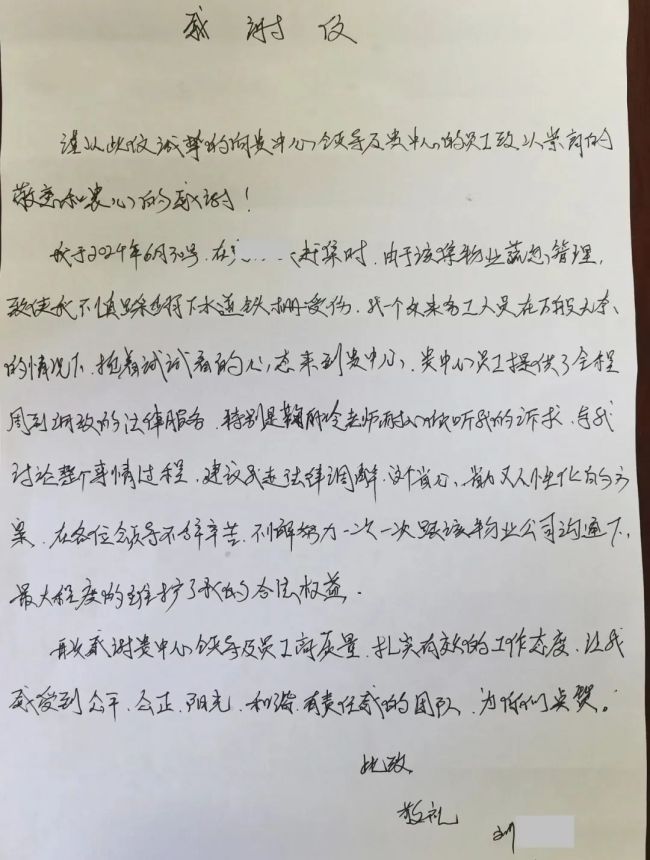 感谢信
谨以此信诚挚的向贵中心领导及贵中心的员工致以崇高的
敬意和衷心的感谢！
我于2024年6月30号.在 赶集时.由于该集物业疏忽管理,
致使我不慎踩到下水道铁栅受伤.我一个外来务工人员在万般无奈
的情况下.抱着试试看的心态来到贵中心.贵中心员工提供了全程
周到细致的法律服务.特别是鞠丽玲老师耐心倾听我的诉求.与我
讨论整个事情过程.建议我走法律调解.这个省心、省力又人性化的方
案.在各位领导不辞辛苦.不懈努力一次一次跟该物业公司沟通下.
最大程度的维护了我的合法权益.
再次感谢贵中心领导及员工高质量.扎实有效的工作态度.让我
感受到公平.公正.阳光.和谐.有责任感的团队.为你们点赞。
此致
敬礼
刘